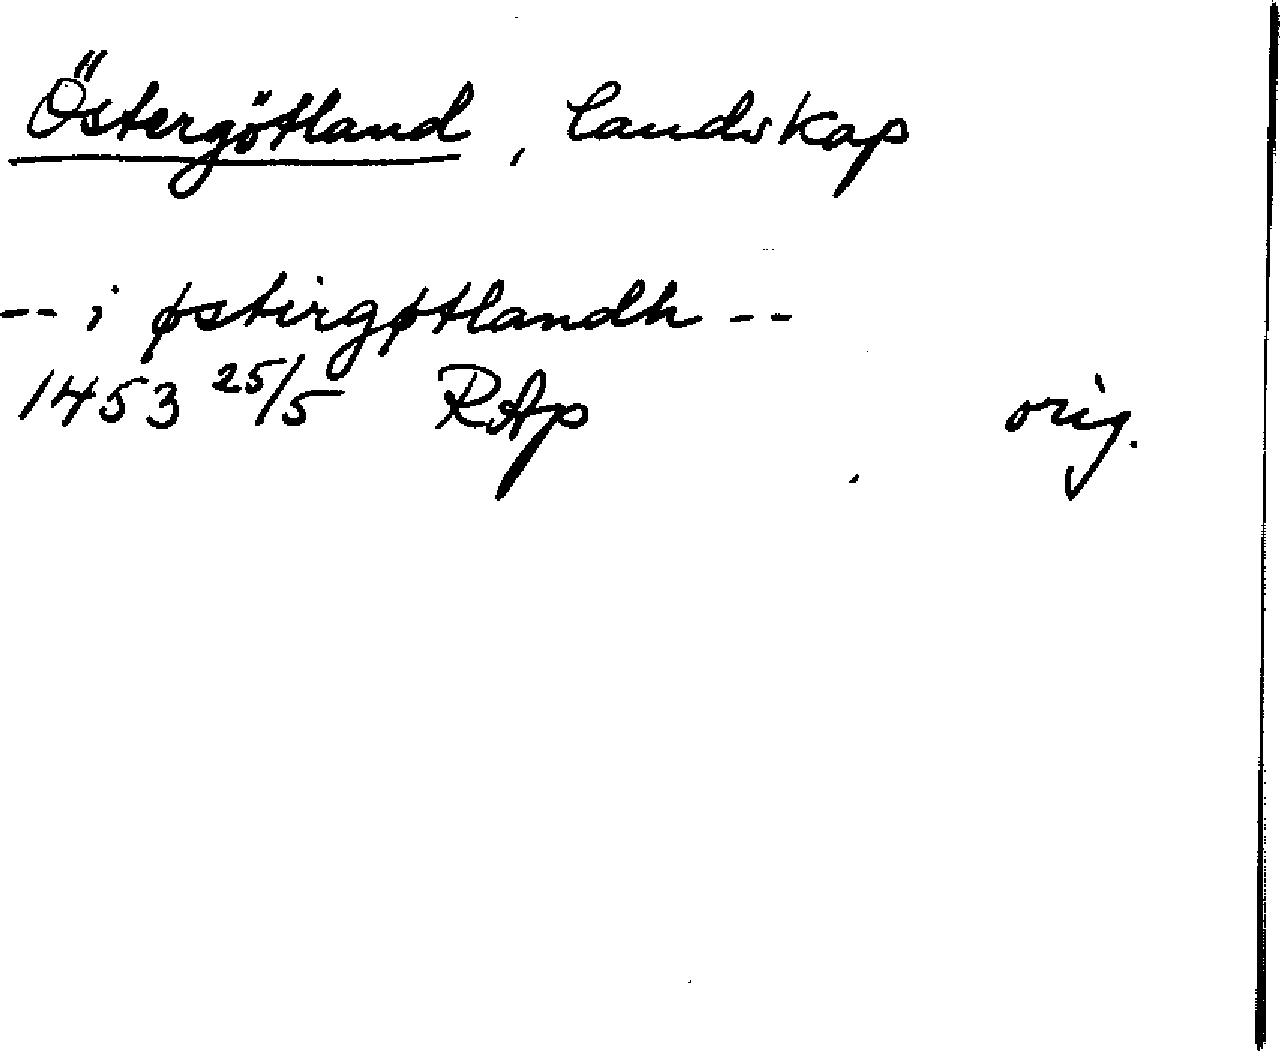 Östergötland, landskap
-- i østirgøtlandh --
1453 25/5 RAp orig.